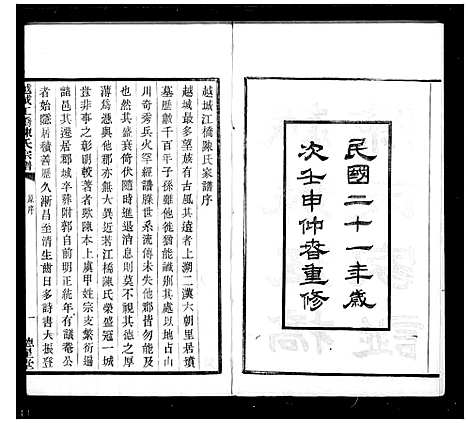 民國二十一年歲
次壬申仲春重修
越城江橋陳氏家譜序
越城最多望族古風其遠者上湖二漢六朝里居墳
墓歷數千百年子孫雖他徙猶能識別其處以地占山
川奇秀兵火罕經譜牒世系流傳未失他郡皆勿能及
也然其盛衰倚伏隨時迭更則莫不視其德之厚
薄先世與他郡亦無大異近若江橋陳氏榮盛冠一城
豈非事之彰明較著者歟陳本上虞甲姓宗支繁衍遍
諸邑其遷居郡城辛葬附郭自前明正統年有議菴公
者始隱居積善歷久漸昌至清生齒日多詩書大振登
越城江橋陳氏宗譜
原序
一